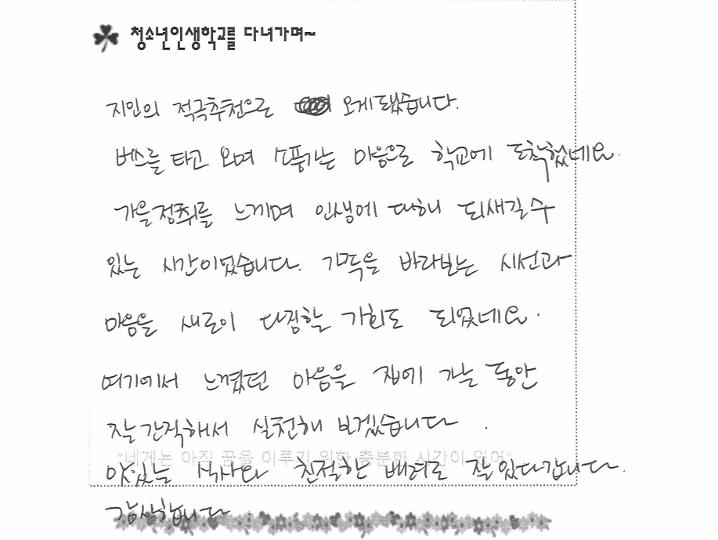 청소년인생학교를 다녀가며~
지인의 적극추천으로 오게됐습니다.
버스를 타고 오며 소풍가는 마음으로 학교에 도착했네요.
가을정취를 느끼며 인생에 대해 되새길 수
있는 시간이었습니다. 가족을 바라보는 시선과
마음을 새로이 다짐할 기회도 되었네요.
여기에서 느꼈던 마음을 집에 가는 동안
잘 간직해서 실천해 보겠습니다.
"네게는 아직 꿈을 이루기 위한 충분한 시간이 있어"
맛있는 식사와 친절한 배려로 잘 있다 갑니다.
감사합니다